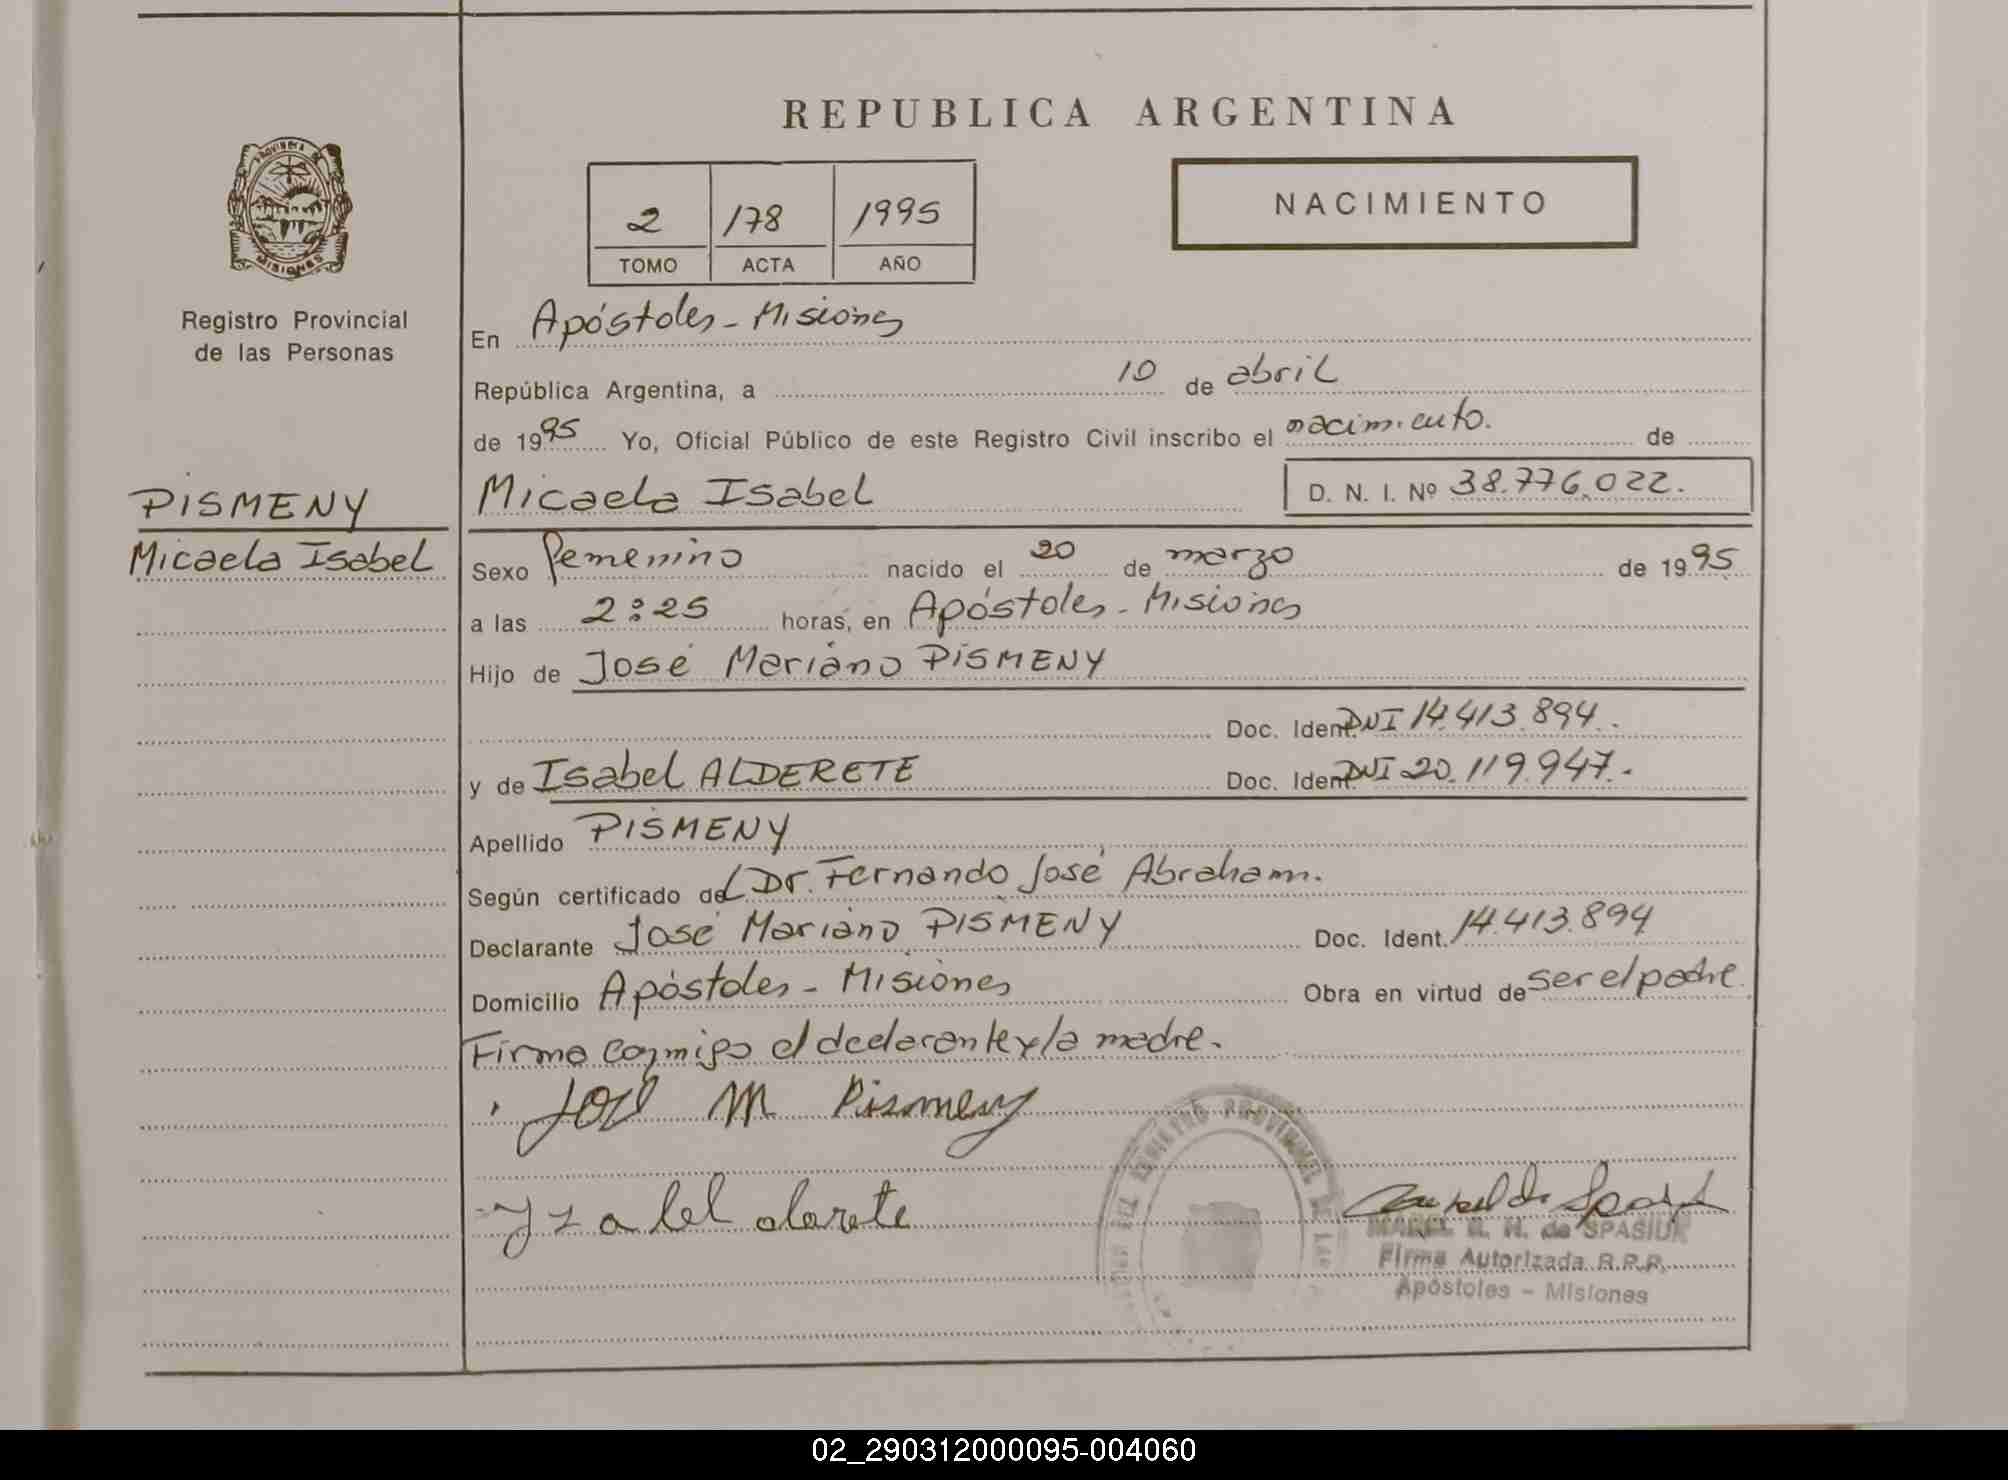 REPUBLICA ARGENTINA
PROVINCIA DE
MISIONES
Registro Provincial
de las Personas
2 178 1995
TOMO ACTA AÑO
NACIMIENTO
En Apóstoles - Misiones
República Argentina, a 10 de abril
de 1995 Yo, Oficial Público de este Registro Civil inscribo el nacimiento. de
PISMENY
Micaela Isabel
Micaela Isabel D. N. I. Nº 38.776.022.
Sexo femenino nacido el 20 de marzo de 1995
a las 2:25 horas, en Apóstoles - Misiones
Hijo de José Mariano PISMENY
Doc. Ident. DNI 14.413.894.
y de Isabel ALDERETE Doc. Ident. DNI 20.119.947.-
Apellido PISMENY
Según certificado del Dr. Fernando José Abraham.
Declarante José Mariano PISMENY Doc. Ident. 14.413.894
Domicilio Apóstoles - Misiones Obra en virtud de ser el padre.
Firma conmigo el declarante y la madre.
José M Pismeny
Yzabel alarete
REGISTRO PROVINCIAL DE LAS
MABEL de SPASIUK
Firma Autorizada R.R.P.
Apóstoles - Misiones
02_290312000095-004060